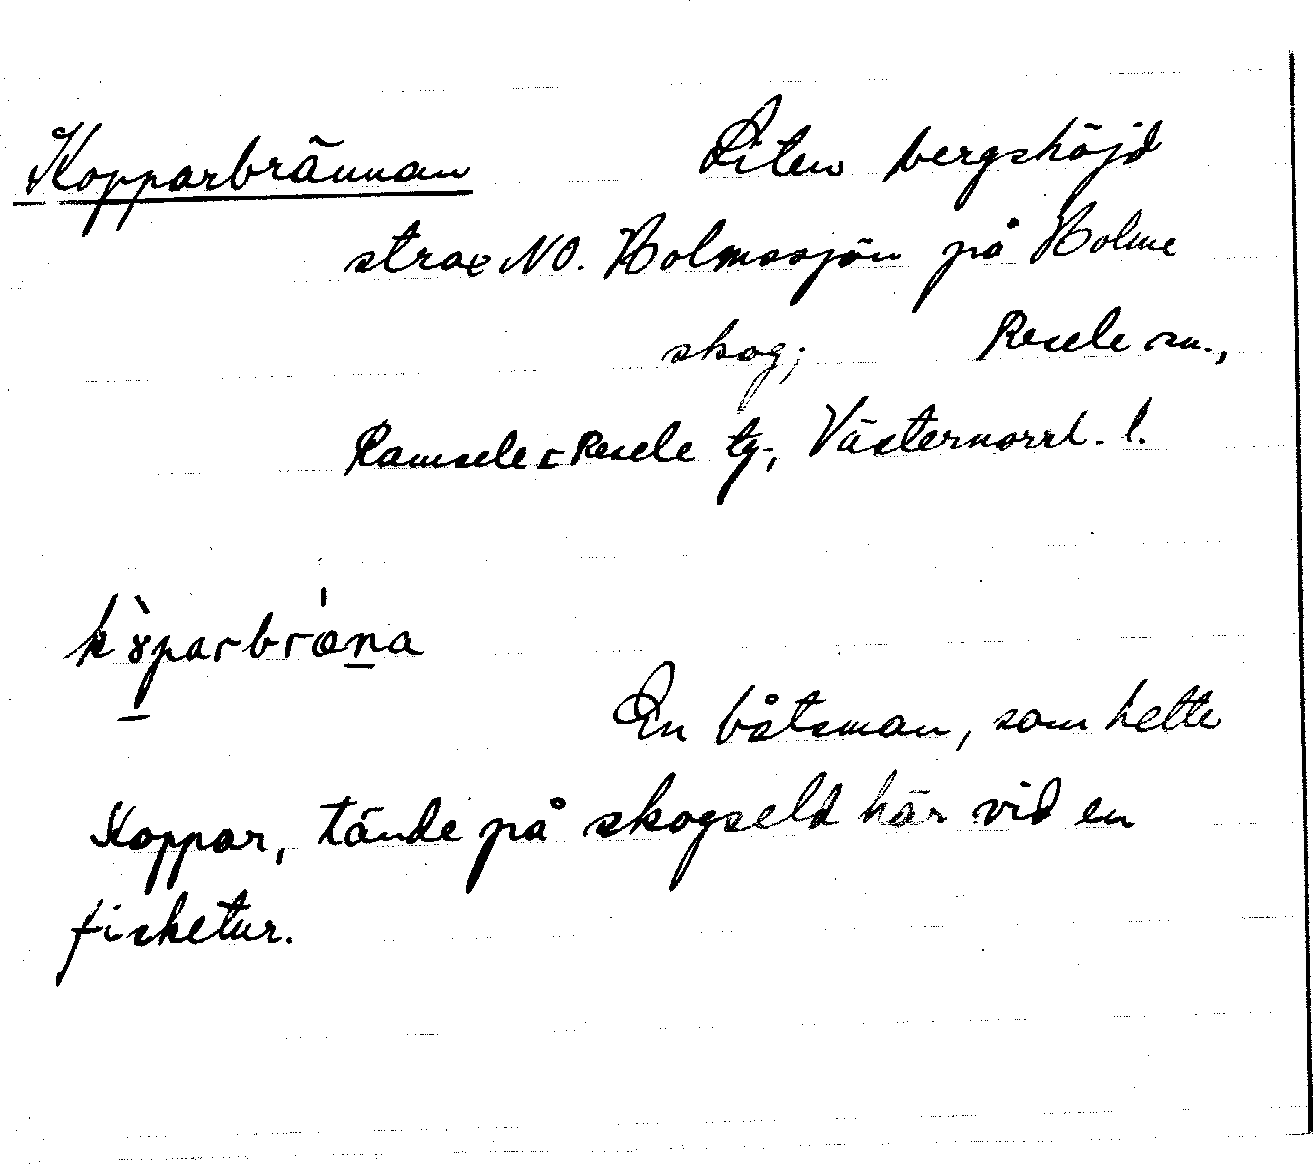 Kopparbrännan Liten bergshöjd
strax NO. Holmssjön på Holme
skog; Resele sn.,
Ramsele o Resele tg., Västernorrl. l.
En båtsman, som hette
Koppar, tände på skogseld här vid en
fisketur.